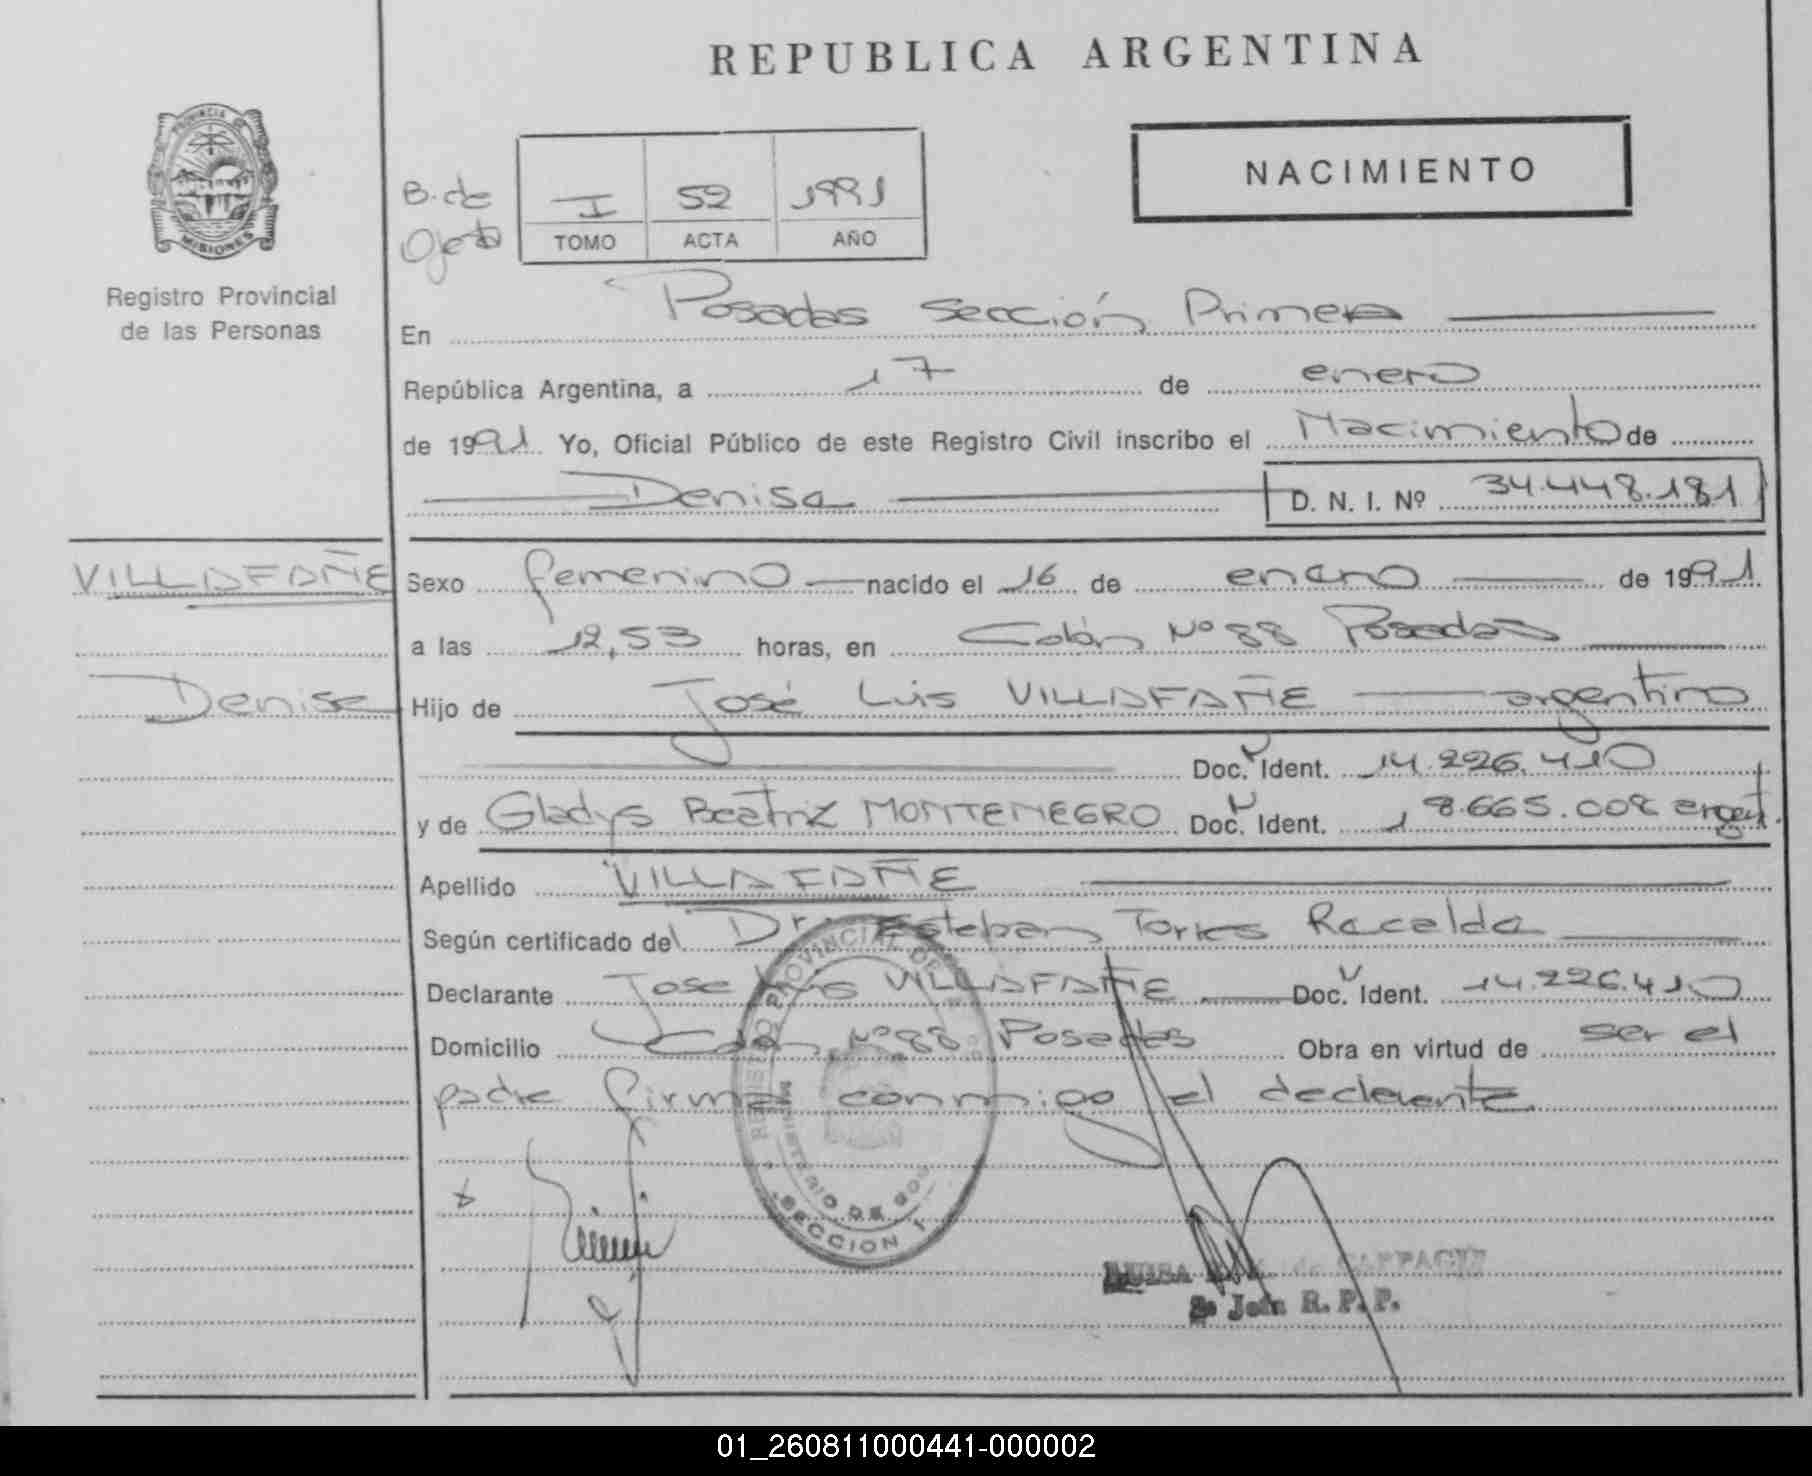 REPUBLICA ARGENTINA
PROVINCIA DE
MISIONES
Registro Provincial
de las Personas
NACIMIENTO
B. de
I 52 1991
TOMO ACTA AÑO
En Posadas Sección Primera
República Argentina, a 17 de enero
de 1991. Yo, Oficial Público de este Registro Civil inscribo el Nacimiento de
Denise D. N. I. Nº 34.448.181
VILLAFAÑE
Denise
Sexo femenino nacido el 16 de enero de 1991.
a las 12,53 horas, en Colón Nº 88 Posadas
Hijo de José Luis VILLAFAÑE argentino
Doc. Ident. 14.226.410
y de Gladys Beatriz MONTENEGRO Doc. Ident. 18.665.008 argent.
Apellido VILLAFAÑE
Según certificado del Dr. Esteban Torres Recalde
Declarante Jose Luis VILLAFAÑE Doc. Ident. 14.226.410
Domicilio Colón Nº 88 Posadas Obra en virtud de ser el
padre firma conmigo el declarante
REGISTRO PROVINCIAL DE
MINISTERIO DE GOB
SECCION 1
LUISA de
2º Jefa R. P. P.
01_260811000441-000002